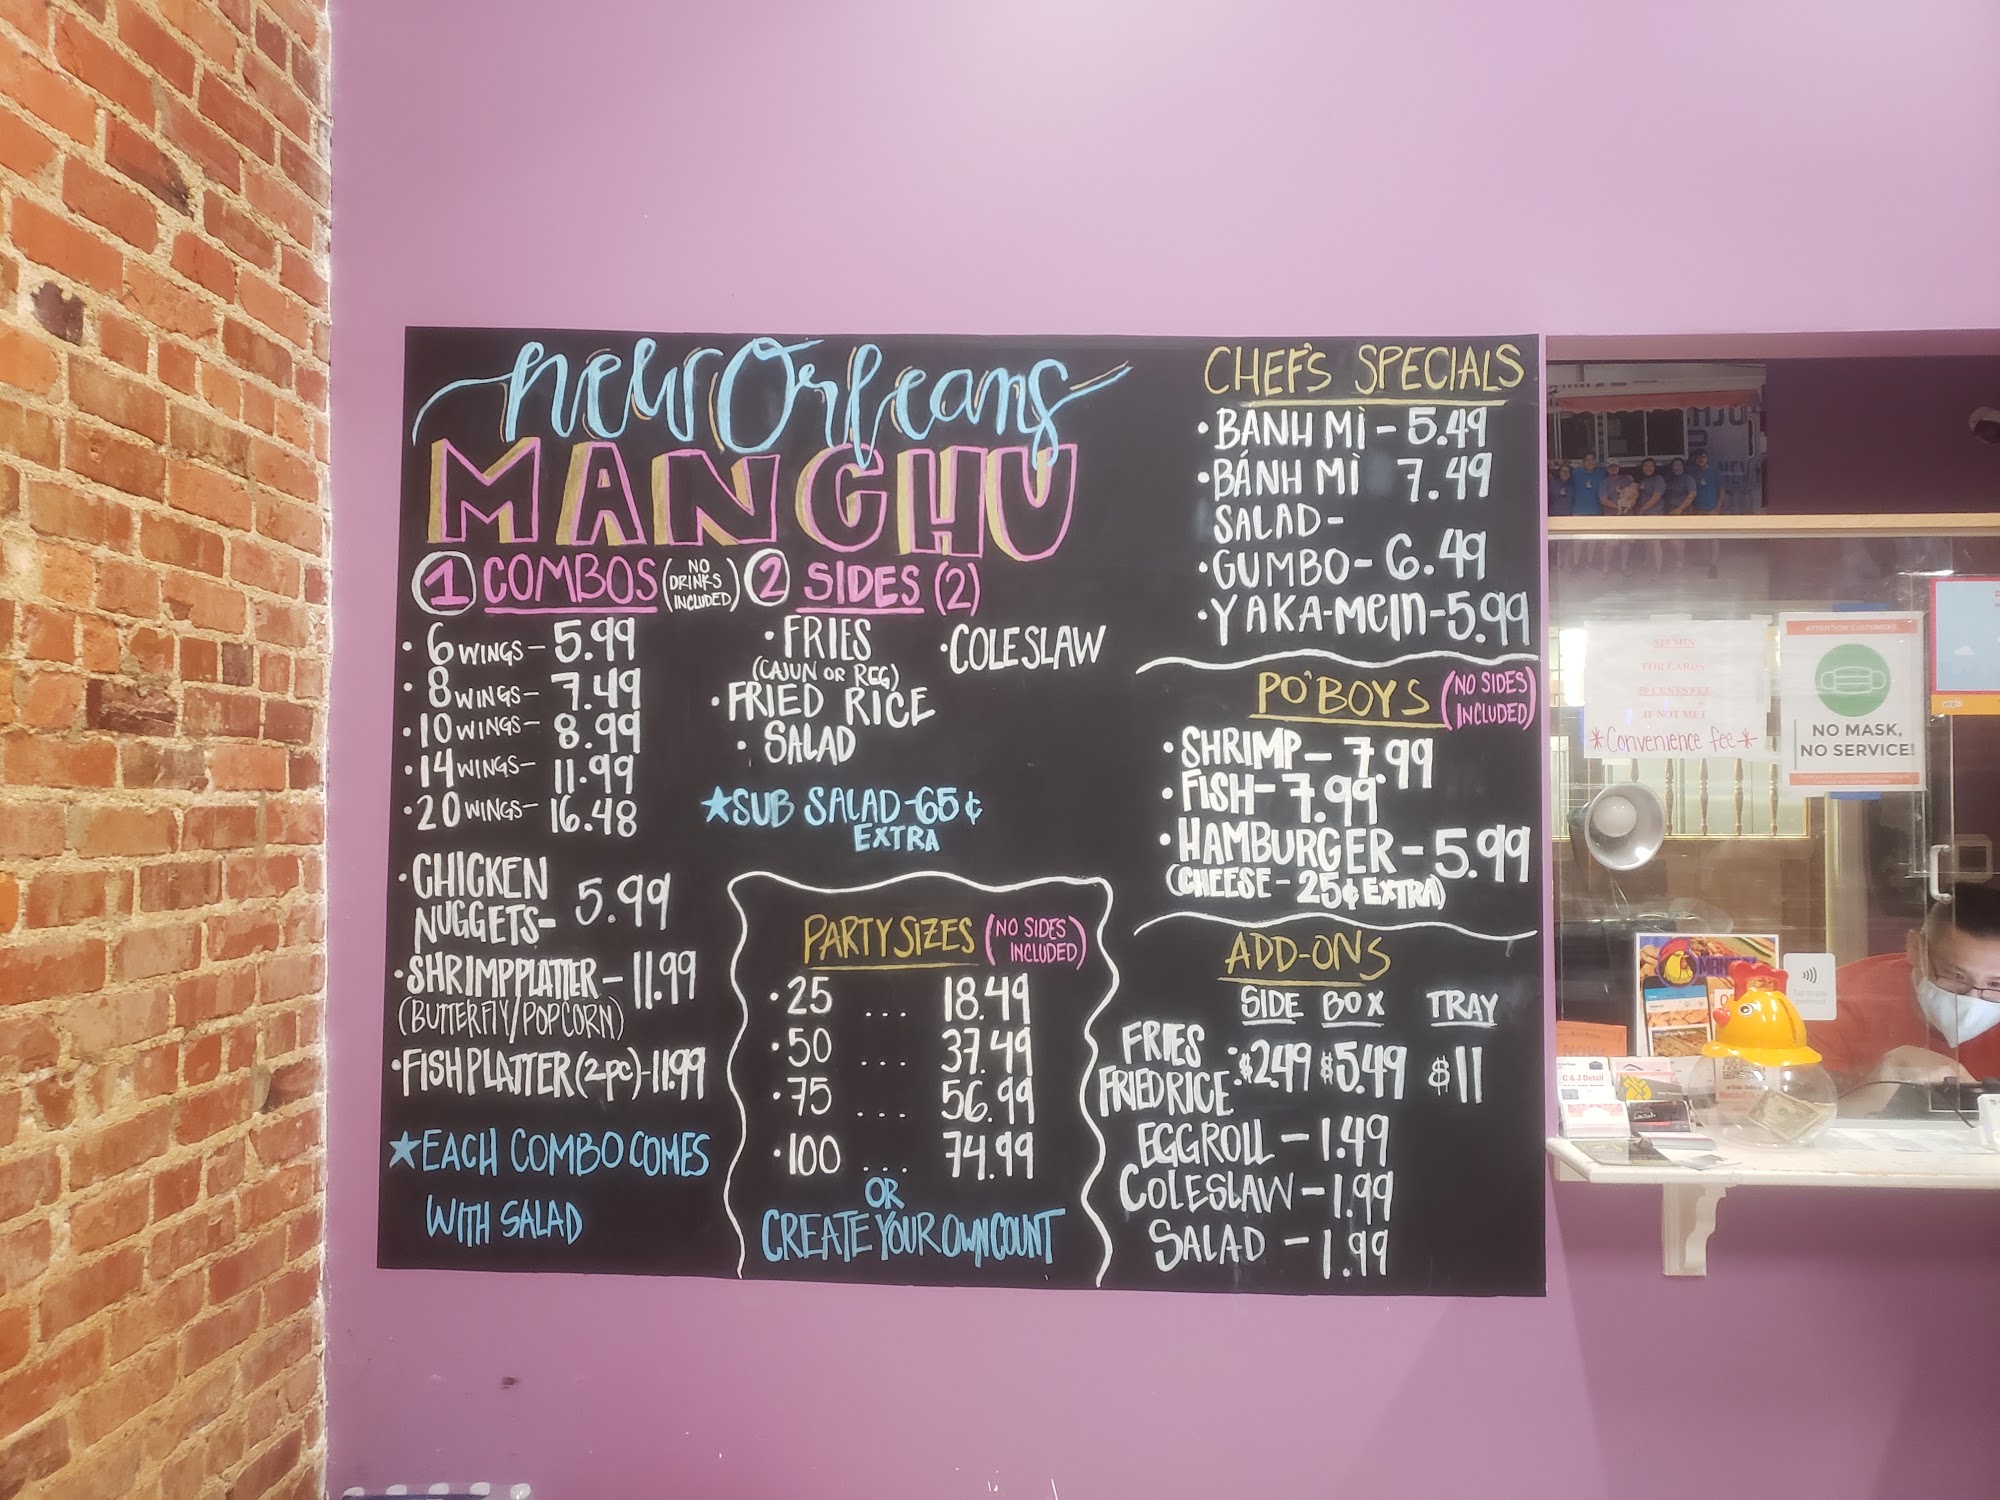 New Orleans
MANCHU
1 COMBOS (NO DRINKS INCLUDED)
• 6 WINGS - 5.99
• 8 WINGS - 7.49
• 10 WINGS - 8.99
• 14 WINGS - 11.99
• 20 WINGS - 16.48
• CHICKEN
NUGGETS - 5.99
• SHRIMP PLATTER - 11.99
(BUTTERFLY/POPCORN)
• FISH PLATTER (2pc) - 11.99
★ EACH COMBO COMES
WITH SALAD
2 SIDES (2)
• FRIES
(CAJUN OR REG)
• FRIED RICE
• SALAD
• COLESLAW
★ SUB SALAD - 65¢
EXTRA
PARTY SIZES (NO SIDES INCLUDED)
• 25 ... 18.49
• 50 ... 37.49
• 75 ... 56.99
• 100 ... 74.99
OR
CREATE YOUR OWN COUNT
CHEF'S SPECIALS
• BÁNH MÌ - 5.49
• BÁNH MÌ 7.49
SALAD -
• GUMBO - 6.49
• YAKA-MEIN - 5.99
PO'BOYS (NO SIDES INCLUDED)
• SHRIMP - 7.99
• FISH - 7.99
• HAMBURGER - 5.99
(CHEESE - 25¢ EXTRA)
ADD-ONS
SIDE BOX TRAY
FRIES
FRIED RICE : $2.49 $5.49 $11
EGGROLL - 1.49
COLESLAW - 1.99
SALAD - 1.99
$10 MIN
FOR CARDS
50 CENTS FEE
IF NOT MET
*Convenience fee*
ATTENTION CUSTOMERS
NO MASK,
NO SERVICE!
MANCHU
Tap to pay
C & J Detail